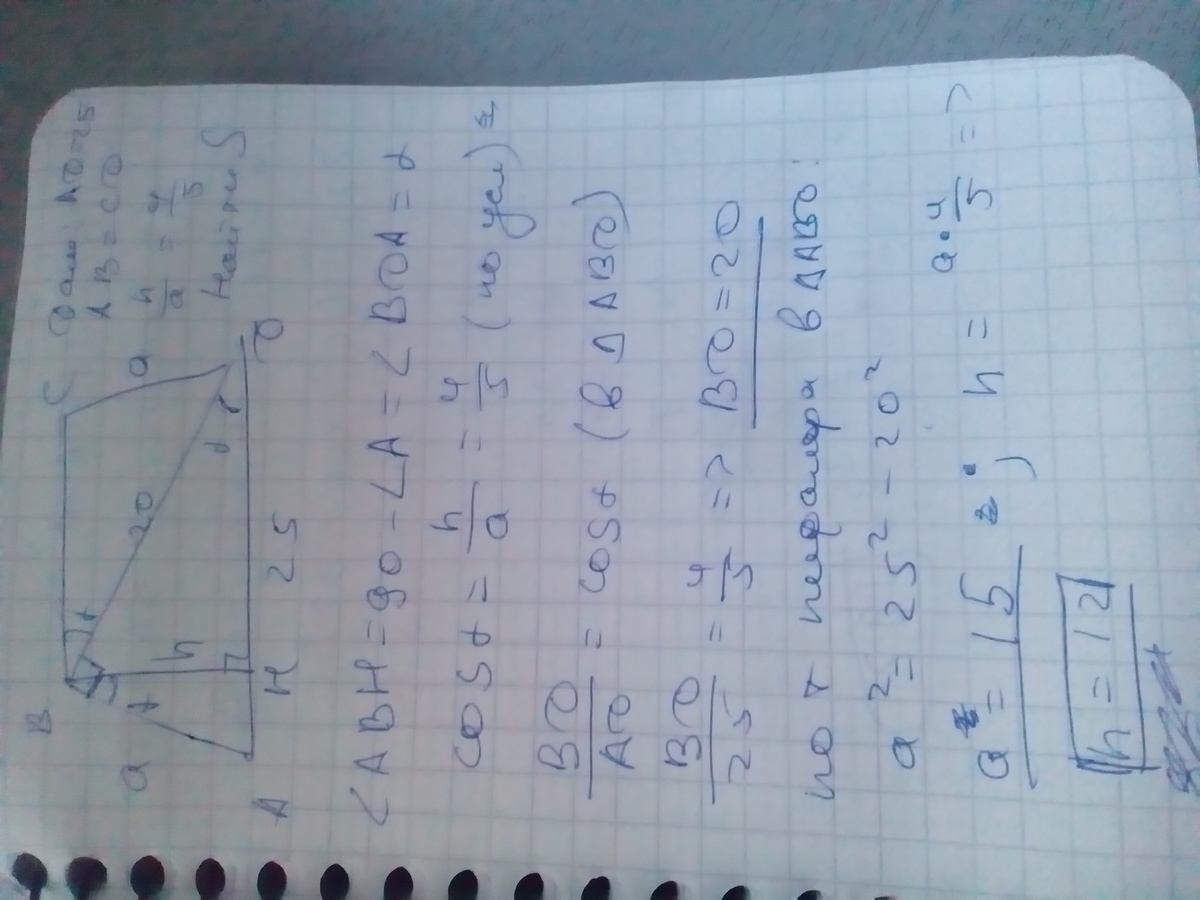 Дано: AD=25
AB=CD
h/a = 4/5
Найти S
B
C
a
a
20
h
α
α
α
A
H
25
D
∠ABH=90-∠A=∠BDA=α
cos α = h/a = 4/5 (по усл)
BD/AD = cos α (в ΔABD)
BD/25 = 4/5 => BD=20
по т пифагора в ΔABD:
a² = 25² - 20²
a = 15 ; h = a·4/5 =>
h = 12